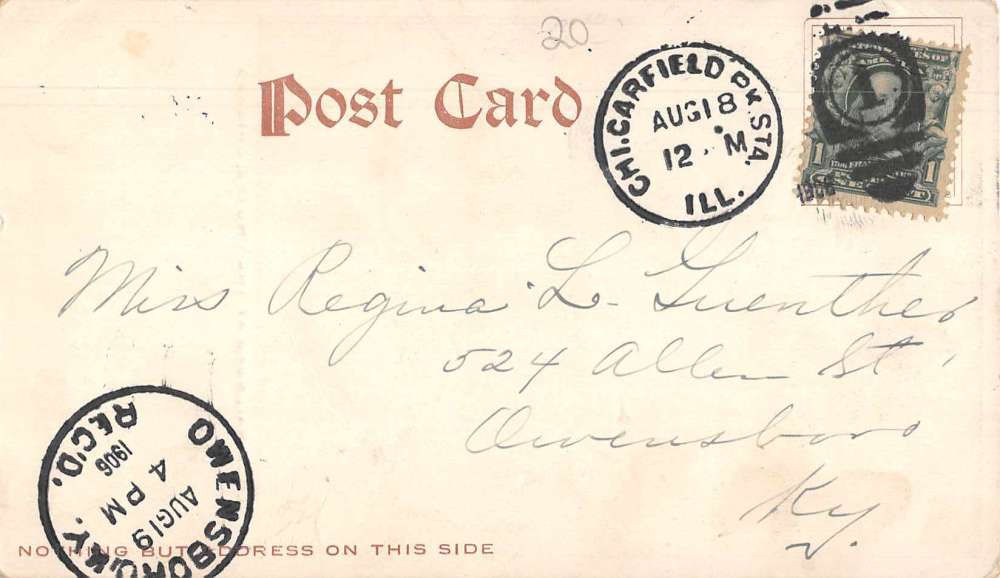 20
Post Card
CHI. GARFIELD PK. STA.
AUG 18
12 M
ILL.
1
1
1906
Miss Regina L. Guenther
524 Allen St.
Owensboro
Ky.
OWENSBORO, KY.
REC'D.
1906
4 PM
AUG 19
NOTHING BUT ADDRESS ON THIS SIDE